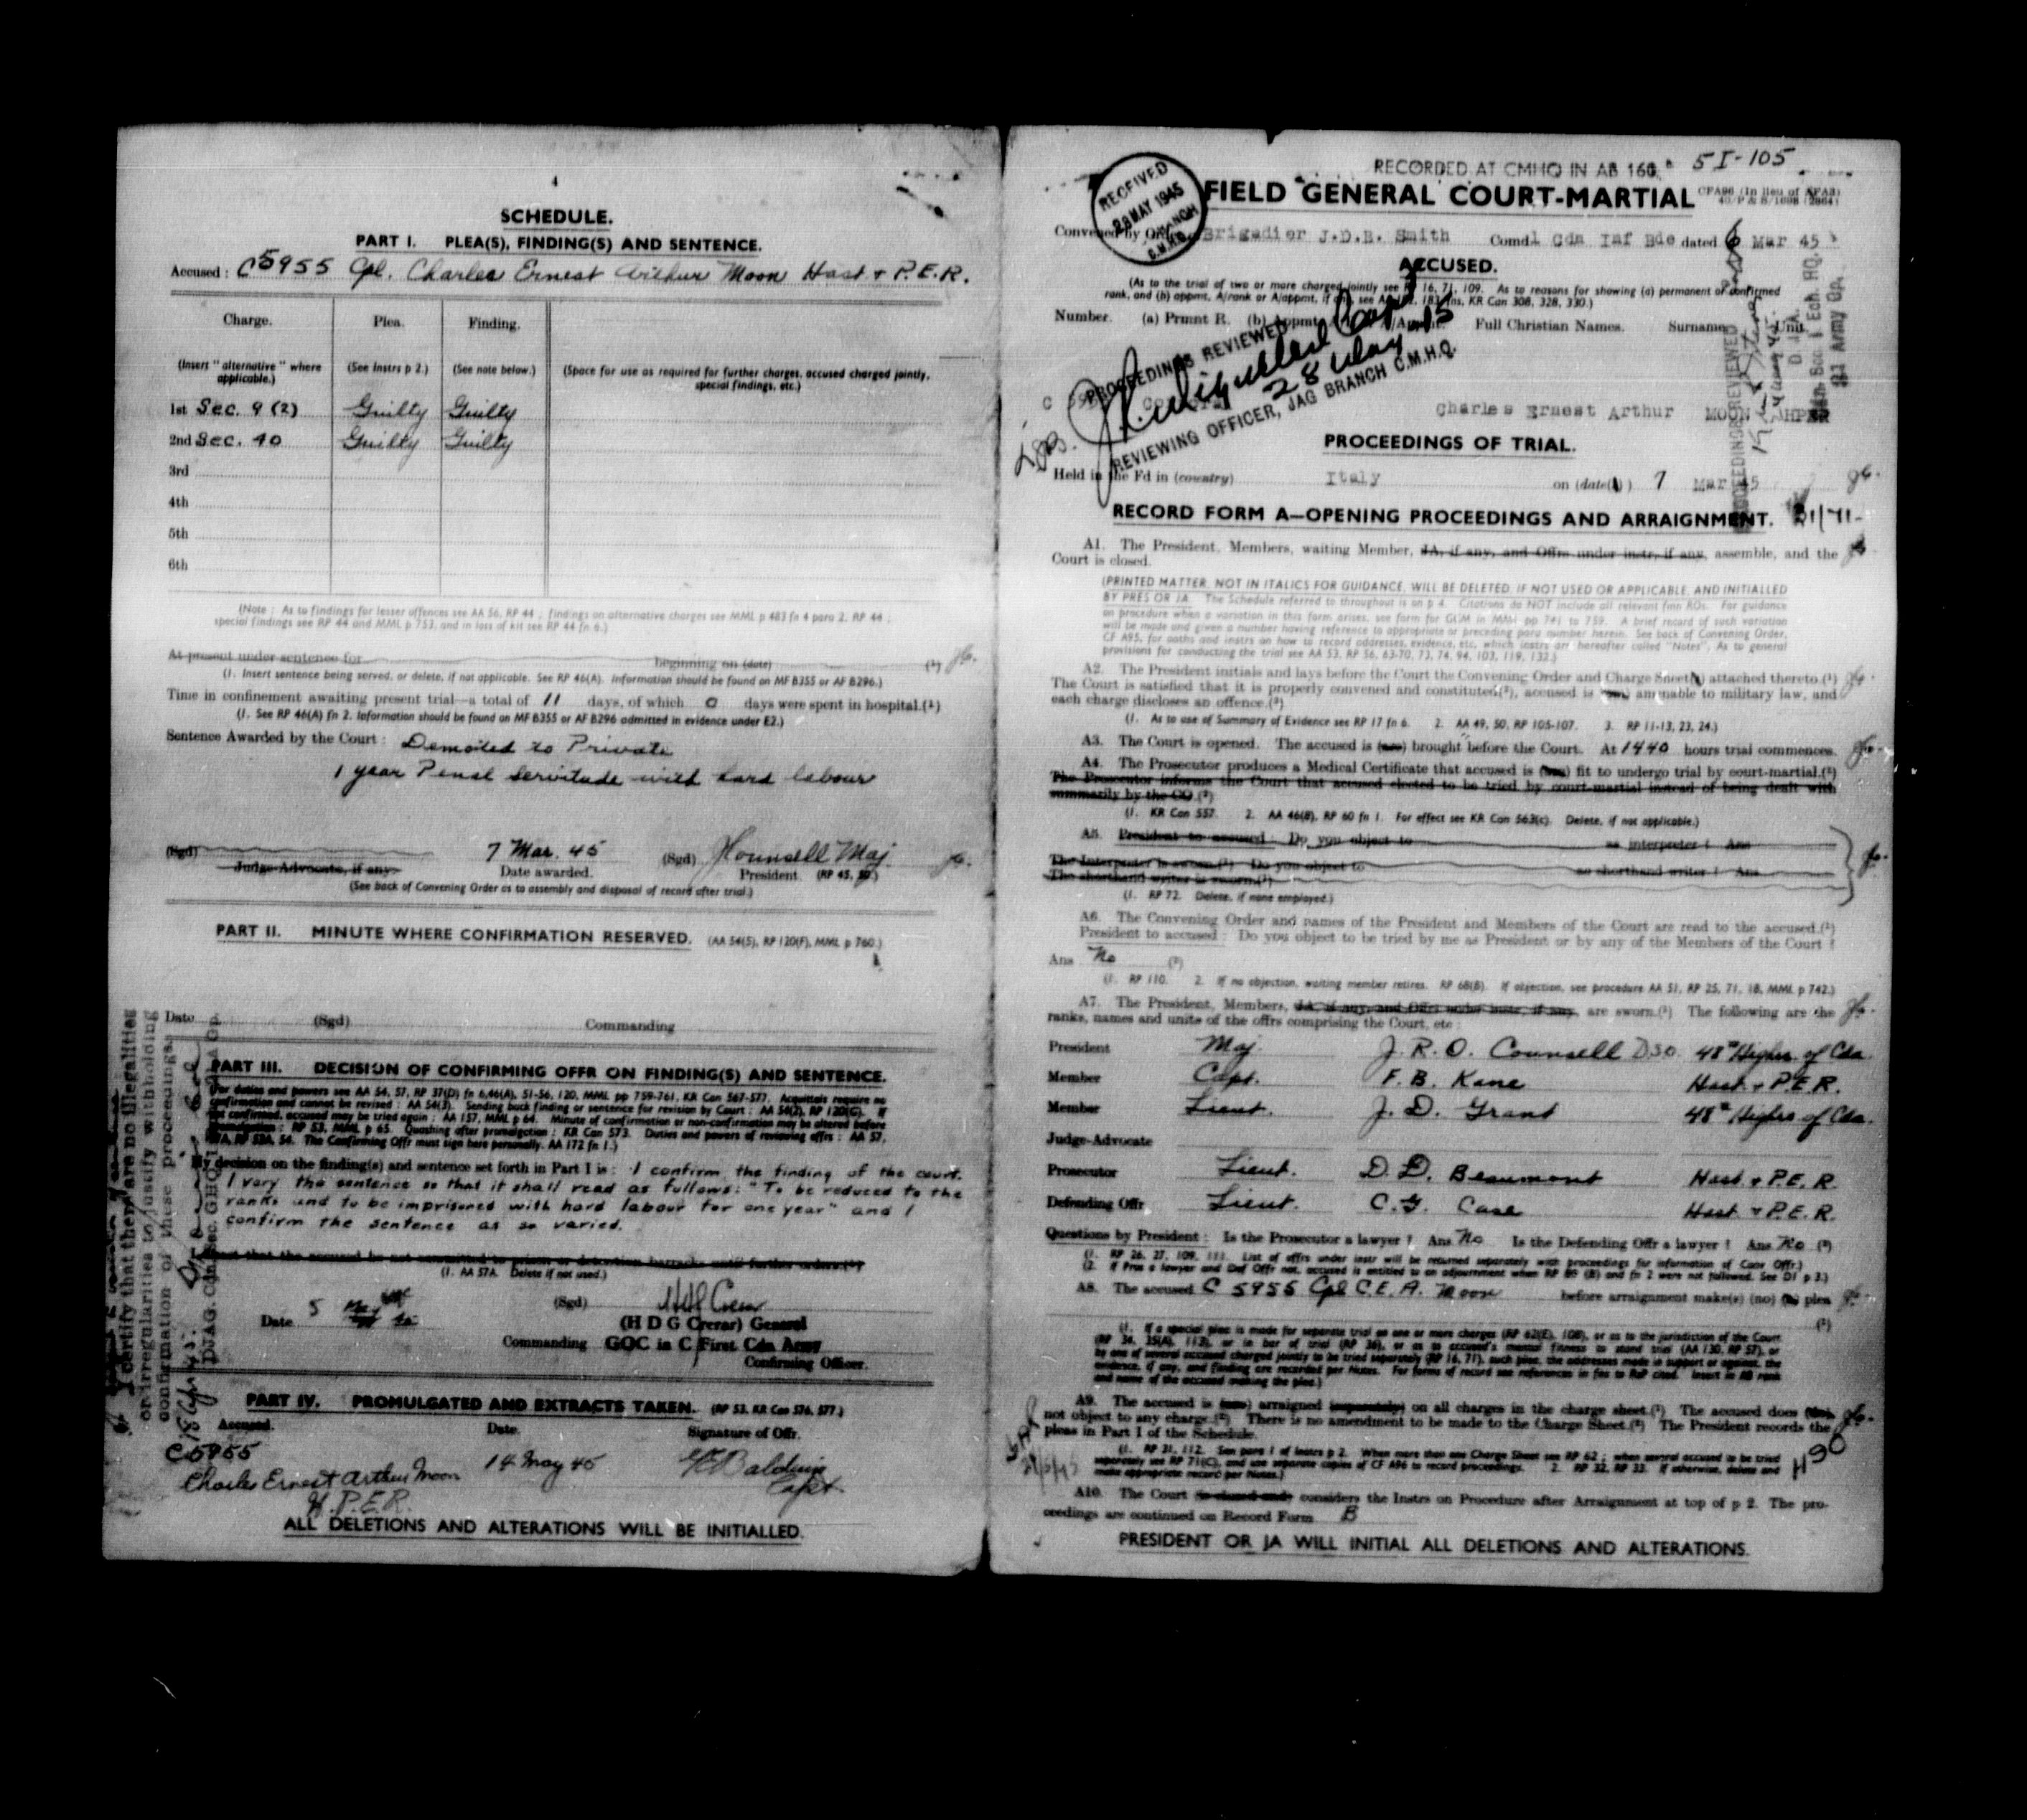 4
SCHEDULE.
PART I. PLEA(S), FINDING(S) AND SENTENCE.
Accused: C5955 Cpl. Charles Ernest Arthur Moon Hast & P.E.R.
Charge. Plea. Finding.
(Insert "alternative" where applicable.) (See Instrs p 2.) (See note below.) (Space for use as required for further charges, accused charged jointly, special findings, etc.)
1st Sec. 9 (2) Guilty Guilty
2nd Sec. 40 Guilty Guilty
3rd
4th
5th
6th
(Note: As to findings for lesser offences see AA 56, RP 44; findings on alternative charges see MML p 483 fn 4 para 2, RP 44;
special findings see RP 44 and MML p 753, and in loss of kit see RP 44 fn 6.)
At present under sentence for beginning on (date) (1)
(1. Insert sentence being served, or delete, if not applicable. See RP 46(A). Information should be found on MF B355 or AF B296.)
Time in confinement awaiting present trial—a total of 11 days, of which 0 days were spent in hospital.(1)
(1. See RP 46(A) fn 2. Information should be found on MF B355 or AF B296 admitted in evidence under E2.)
Sentence Awarded by the Court: Demoted to Private
1 year Penal Servitude with hard labour
(Sgd) 7 Mar. 45 (Sgd) JCounsell Maj
Judge-Advocate, if any. Date awarded. President. (RP 45, 50.)
(See back of Convening Order as to assembly and disposal of record after trial.)
PART II. MINUTE WHERE CONFIRMATION RESERVED. (AA 54(5), RP 120(F), MML p 760.)
Date (Sgd) Commanding
PART III. DECISION OF CONFIRMING OFFR ON FINDING(S) AND SENTENCE.
(For duties and powers see AA 54, 57, RP 37(D) fn 6,46(A), 51-56, 120, MML pp 759-761, KR Can 567-577. Acquittals require no
confirmation and cannot be revised: AA 54(3). Sending back finding or sentence for revision by Court: AA 54(2), RP 120(G). If
not confirmed, accused may be tried again: AA 157, MML p 64. Minute of confirmation or non-confirmation may be altered before
promulgation: RP 53, MML p 65. Quashing after promulgation: KR Can 573. Duties and powers of reviewing offrs: AA 57,
57A, RP 53A, 54. The Confirming Offr must sign here personally. AA 172 fn 1.)
My decision on the finding(s) and sentence set forth in Part I is: I confirm the finding of the court.
I vary the sentence so that it shall read as follows: "To be reduced to the
ranks and to be imprisoned with hard labour for one year" and I
confirm the sentence as so varied.
I direct that the accused be not committed to prison or detention barracks until further orders.(1)
(1. AA 57A. Delete if not used.)
Date 5 May 45 (Sgd)
(H D G Crerar) General
Commanding GOC in C First Cdn Army
Confirming Officer.
PART IV. PROMULGATED AND EXTRACTS TAKEN. (RP 53, KR Can 576, 577.)
Accused. Date. Signature of Offr.
C5955
Charles Ernest Arthur Moon 14 May 45 Baldwin Capt
H.P.E.R.
ALL DELETIONS AND ALTERATIONS WILL BE INITIALLED.
I certify that there are no illegalities
or irregularities to justify withholding
confirmation of these proceedings.
18 Apr 45.
RECORDED AT CMHQ IN AB 160. 5I-105
RECEIVED 28 MAY 1945 BRANCH C.M.H.Q.
FIELD GENERAL COURT-MARTIAL
CFA96 (In lieu of AFA3)
Convened by Offr Brigadier J.D.B. Smith Comd 1 Cdn Inf Bde dated 6 Mar 45
ACCUSED.
(As to the trial of two or more charged jointly see RP 16, 71, 109. As to reasons for showing (a) permanent or confirmed
rank, and (b) appmt, A/rank or A/appmt, if any, see KR Can 308, 328, 330.)
Number. (a) Prmnt R. (b) Appmt, A/Appmt. Full Christian Names. Surname. Unit.
PROCEEDINGS REVIEWED
28 May 45
REVIEWING OFFICER, JAG BRANCH C.M.H.Q.
Charles Ernest Arthur MOON HPER
PROCEEDINGS REVIEWED
PROCEEDINGS OF TRIAL.
Held in the Fd in (country) Italy on (date(s)) 7 Mar 45
RECORD FORM A—OPENING PROCEEDINGS AND ARRAIGNMENT.
A1. The President, Members, waiting Member, JA, if any, and Offrs under instr, if any, assemble, and the
Court is closed.
(PRINTED MATTER, NOT IN ITALICS FOR GUIDANCE, WILL BE DELETED, IF NOT USED OR APPLICABLE, AND INITIALLED
BY PRES OR JA. The Schedule referred to throughout is on p 4. Citations do NOT include all relevant fnn ROs. For guidance
on procedure when a variation in this form arises, see form for GCM in MML pp 741 to 759. A brief record of such variation
will be made and given a number having reference to appropriate or preceding para number herein. See back of Convening Order,
CF A95, for oaths and instrs on how to record addresses, evidence, etc, which instrs are hereafter called "Notes". As to general
provisions for conducting the trial see AA 53, RP 56, 63-70, 73, 74, 94, 103, 119, 132.)
A2. The President initials and lays before the Court the Convening Order and Charge Sheet(s) attached thereto.(1)
The Court is satisfied that it is properly convened and constituted,(2), accused is (are) amenable to military law, and
each charge discloses an offence.(3)
(1. As to use of Summary of Evidence see RP 17 fn 6. 2. AA 49, 50, RP 105-107. 3. RP 11-13, 23, 24.)
A3. The Court is opened. The accused is (are) brought before the Court. At 1440 hours trial commences.
A4. The Prosecutor produces a Medical Certificate that accused is (are) fit to undergo trial by court-martial.(1)
The Prosecutor informs the Court that accused elected to be tried by court-martial instead of being dealt with
summarily by the CO.(2)
(1. KR Can 557. 2. AA 46(8), RP 60 fn 1. For effect see KR Can 563(c). Delete, if not applicable.)
A5. President to accused: Do you object to as interpreter? Ans
The Interpreter is sworn.(1) Do you object to as shorthand writer? Ans
The shorthand writer is sworn.(1)
(1. RP 72. Delete, if none employed.)
A6. The Convening Order and names of the President and Members of the Court are read to the accused.(1)
President to accused: Do you object to be tried by me as President or by any of the Members of the Court?
Ans No (2)
(1. RP 110. 2. If no objection, waiting member retires. RP 68(B). If objection, see procedure AA 51, RP 25, 71, 18, MML p 742.)
A7. The President, Members, JA, if any, and Offrs under instr, if any, are sworn.(1) The following are the
ranks, names and units of the offrs comprising the Court, etc:
President Maj. J. R. O. Counsell DSO 48th Highrs. of Cda.
Member Capt. F. B. Kane Hast. & P.E.R.
Member Lieut. J. D. Grant 48th Highrs of Cda.
Judge-Advocate
Prosecutor Lieut. D. D. Beaumont Hast. & P.E.R.
Defending Offr Lieut. C. G. Case Hast. & P.E.R.
Questions by President: Is the Prosecutor a lawyer? Ans No Is the Defending Offr a lawyer? Ans No (2)
(1. RP 26, 27, 109, 111. List of offrs under instr will be returned separately with proceedings for information of Conv Offr.)
(2. If Pros a lawyer and Def Offr not, accused is entitled to an adjournment when RP 88 (B) and fn 2 were not followed. See D1 p 3.)
A8. The accused C 5955 Cpl C.E.A. Moon before arraignment make(s) (no) (a) plea
(1)
(1. If a special plea is made for separate trial on one or more charges (RP 62(E), 108), or as to the jurisdiction of the Court
(RP 34, 35(A), 113), or in bar of trial (RP 36), or as to accused's mental fitness to stand trial (AA 130, RP 57), or
by one of several accused charged jointly to be tried separately (RP 16, 71), such plea, the addresses made in support or against, the
evidence, if any, and finding are recorded per Notes. For forms of record see references in fns to RsP cited. Insert in A8 rank
and name of the accused making the plea.)
A9. The accused is (are) arraigned (separately) on all charges in the charge sheet.(1) The accused does (do)
not object to any charge.(2) There is no amendment to be made to the Charge Sheet.(2) The President records the
pleas in Part I of the Schedule.
(1. RP 31, 112. See para 1 of Instrs p 2. When more than one Charge Sheet see RP 62; when several accused to be tried
separately see RP 71(C), and use separate copies of CF A96 to record proceedings. 2. RP 32, RP 33. If otherwise, delete and
make appropriate record per Notes.)
A10. The Court (is closed and) considers the Instrs on Procedure after Arraignment at top of p 2. The pro-
ceedings are continued on Record Form B
PRESIDENT OR JA WILL INITIAL ALL DELETIONS AND ALTERATIONS.